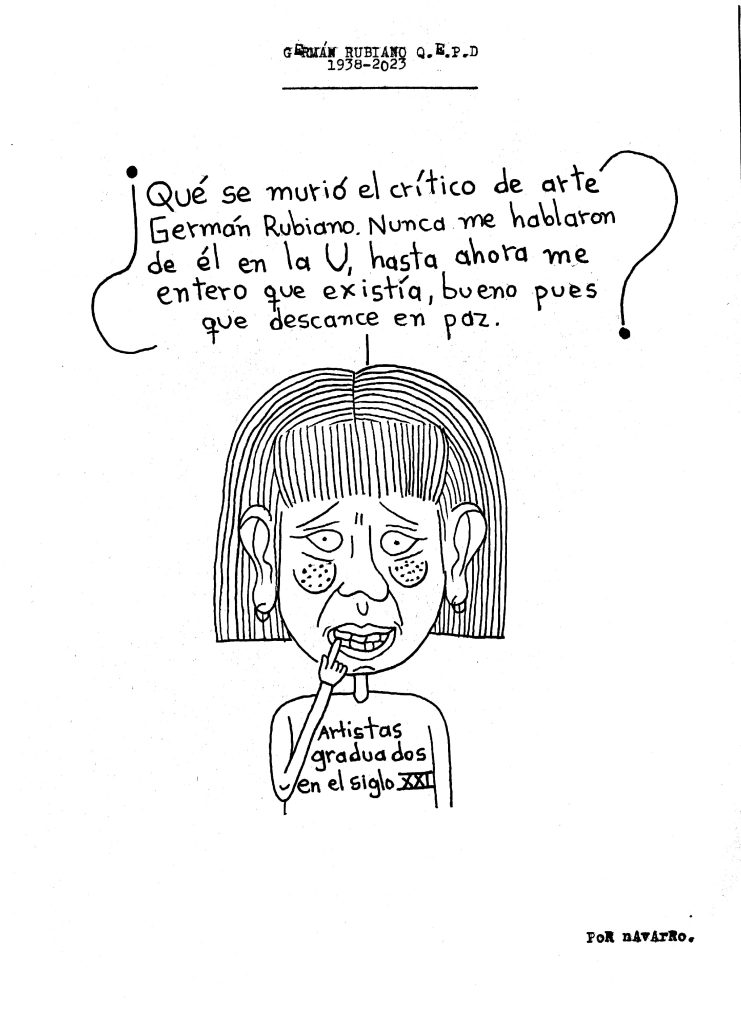 GERMÁN RUBIANO Q.E.P.D
1938-2023
¿Qué se murió el crítico de arte
Germán Rubiano. Nunca me hablaron
de él en la U, hasta ahora me
entero que existía, bueno pues
que descance en paz.?
Artistas
graduados
en el siglo XXI
POR NAVARRO.